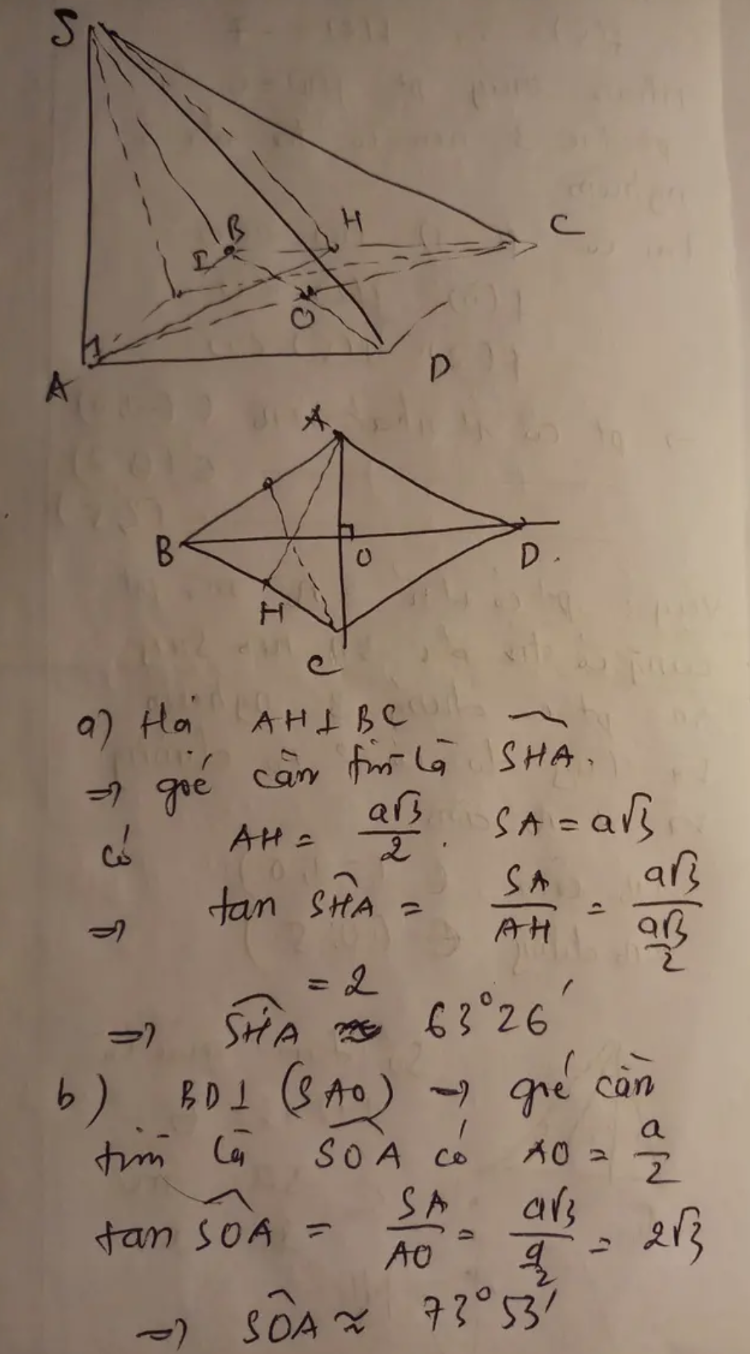 S
B
H
C
I
O
A
D
A
B
O
D.
H
C
a) Hạ AH ⊥ BC
⇒ góc cần tìm là \widehat{SHA}.
có AH = \frac{a\sqrt{3}}{2}. SA = a\sqrt{3}
⇒ tan \widehat{SHA} = \frac{SA}{AH} = \frac{a\sqrt{3}}{\frac{a\sqrt{3}}{2}}
= 2
⇒ \widehat{SHA} ≈ 63°26'
b) BD ⊥ (SAO) → góc cần
tìm là \widehat{SOA} có AO = \frac{a}{2}
tan \widehat{SOA} = \frac{SA}{AO} = \frac{a\sqrt{3}}{\frac{a}{2}} = 2\sqrt{3}
⇒ \widehat{SOA} ≈ 73°53'